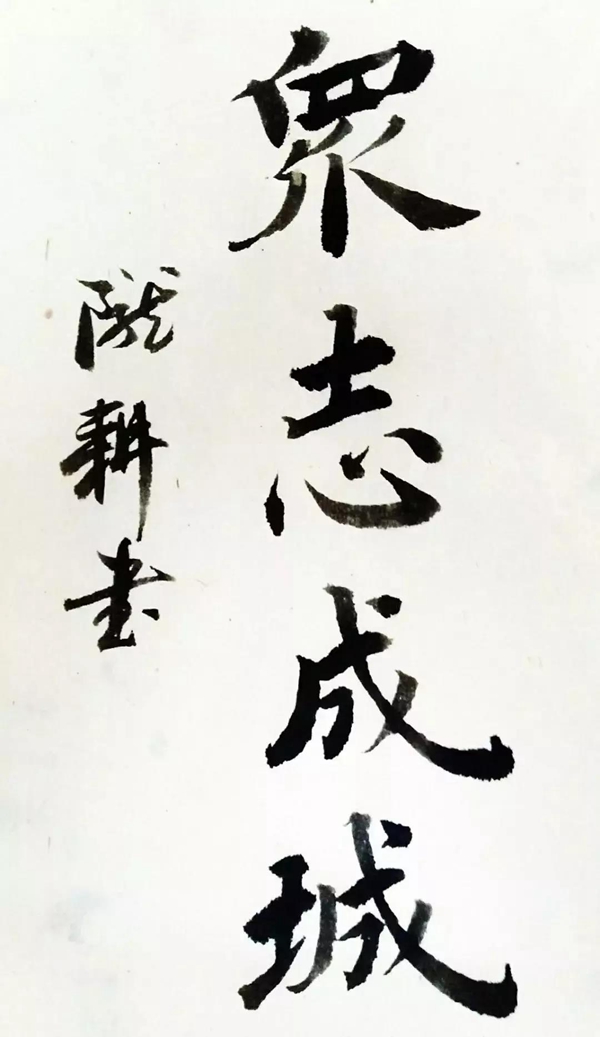 眾志成城
陇耕書